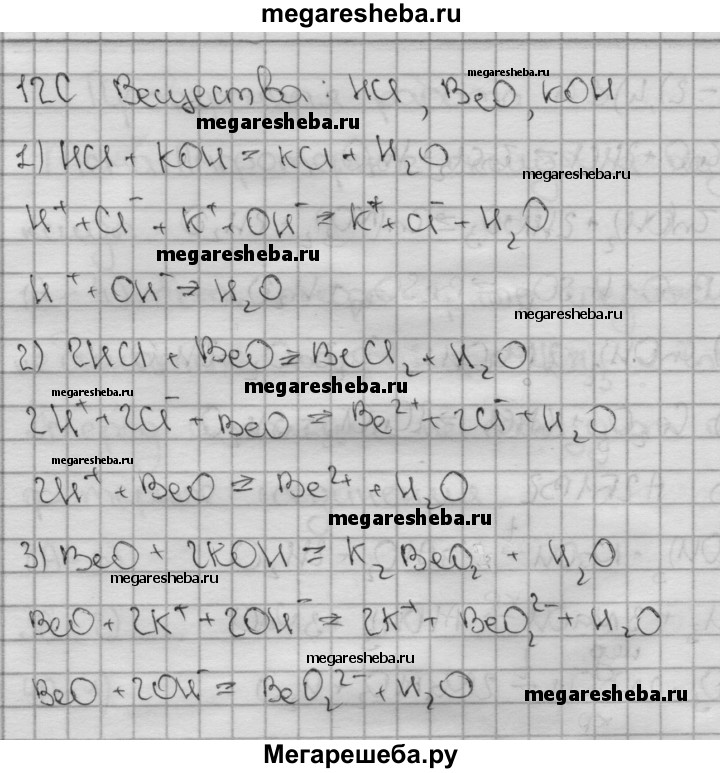 megaresheba.ru
megaresheba.ru
12C Вещества: HCl, BeO, KOH
megaresheba.ru
1) HCl + KOH = KCl + H₂O
megaresheba.ru
H⁺ + Cl⁻ + K⁺ + OH⁻ = K⁺ + Cl⁻ + H₂O
megaresheba.ru
H⁺ + OH⁻ = H₂O
megaresheba.ru
2) 2HCl + BeO = BeCl₂ + H₂O
megaresheba.ru
megaresheba.ru
2H⁺ + 2Cl⁻ + BeO = Be²⁺ + 2Cl⁻ + H₂O
megaresheba.ru
2H⁺ + BeO = Be²⁺ + H₂O
megaresheba.ru
3) BeO + 2KOH = K₂BeO₂ + H₂O
megaresheba.ru
BeO + 2K⁺ + 2OH⁻ = 2K⁺ + BeO₂²⁻ + H₂O
megaresheba.ru
BeO + 2OH⁻ = BeO₂²⁻ + H₂O
megaresheba.ru
Мегарешеба.ру